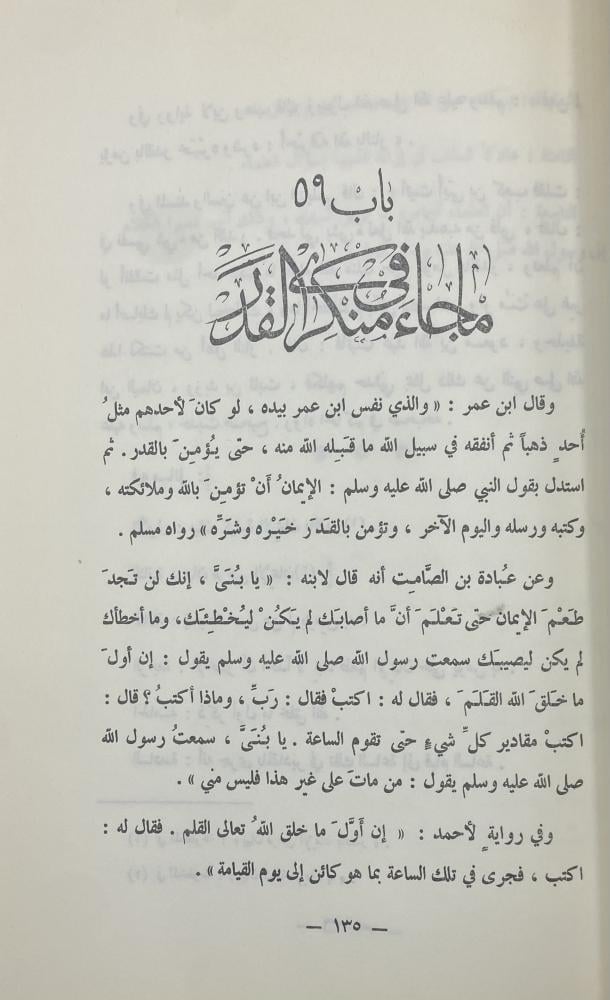 باب ٥٩
ما جاء في منكري القدر
وقال ابن عمر : « والذي نفس ابن عمر بيده ، لو كانَ لأحدهم مثلُ
أُحدٍ ذهباً ثم أنفقه في سبيل الله ما قَبِله الله منه ، حتى يُؤمِنَ بالقدر . ثم
استدل بقول النبي صلى الله عليه وسلم : الإيمانُ أنْ تؤمِنَ بالله وملائكته ،
وكتبه ورسله واليوم الآخر ، وتؤمن بالقَدَر خَيْره وشَرِّه » رواه مسلم .
وعن عُبادة بن الصَّامِت أنه قال لابنه : « يا بُنَيَّ ، إنك لن تَجدَ
طَعْمَ الإيمان حتى تَعْلَمَ أنَّ ما أصابَك لم يَكُنْ ليُخْطِئَك، وما أخطأك
لم يكن ليصيبَك سمعت رسول الله صلى الله عليه وسلم يقول : إن أولَ
ما خَلقَ الله القَلَمَ ، فقال له : اكتبْ فقال : رَبِّ ، وماذا أكتبُ ؟ قال :
اكتبْ مقادير كلِّ شيءٍ حتى تقوم الساعة . يا بُنَيَّ ، سمعتُ رسول الله
صلى الله عليه وسلم يقول : من ماتَ على غير هذا فليس مني » .
وفي روايةٍ لأحمد : « إن أوَّلَ ما خلق اللهُ تعالى القلم . فقال له :
اكتب ، فجرى في تلك الساعة بما هو كائن إلى يوم القيامة » .
– ١٣٥ –